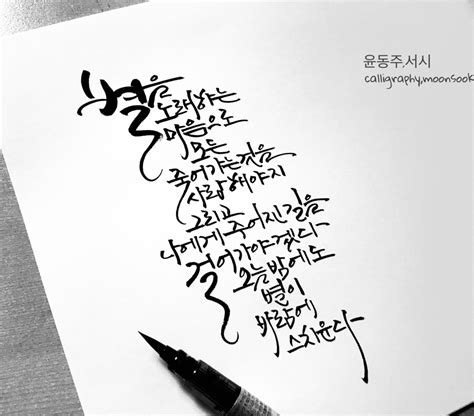 윤동주,서시
calligraphy,moonsook
별을
노래하는
마음으로
모든
죽어가는것을
사랑해야지
그리고
나에게 주어진 길을
걸어가야겠다
오늘밤에도
별이
바람에
스치운다